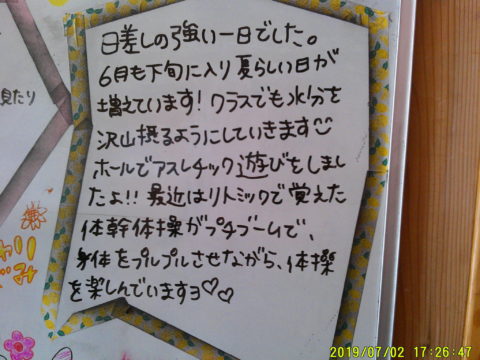 日差しの強い一日でした。
6月も下旬に入り夏らしい日が
増えています！クラスでも水分を
沢山摂るようにしていきます
ホールでアスレチック遊びをしまし
たよ!! 最近はリトミックで覚えた
体幹体操がプチブームで、
身体をプルプルさせながら、体操
を楽しんでいますヨ♡♡
見たり
2019/07/02 17:26:47